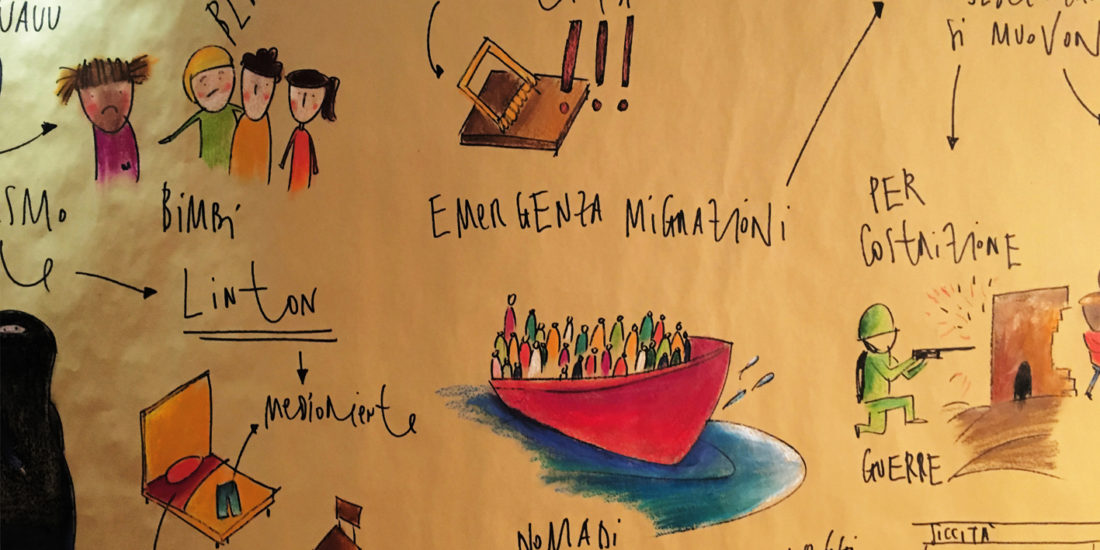 Si MUOVON
BiMBi
EMERGENZA MiGRAZiONi
PER
COSTRIZIONE
Linton
MEDIORIENTE
GUERRE
NOMADi
SICCITÀ